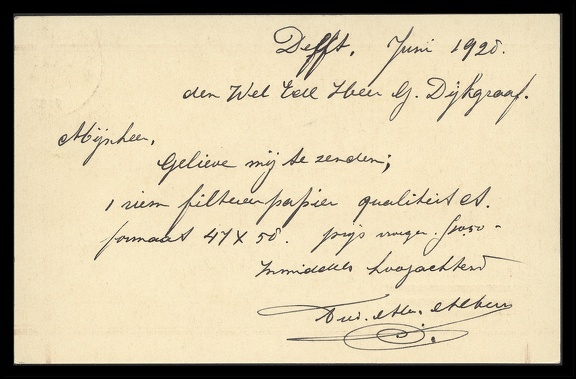 Delft, Juni 1928.
den Wel Edel Heer G. Dijkgraaf.
Mijnheer,
Gelieve mij te zenden;
1 riem filtreerpapier qualiteit A.
formaat 47 X 58. prijs vroeger.
Inmiddels hoogachtend